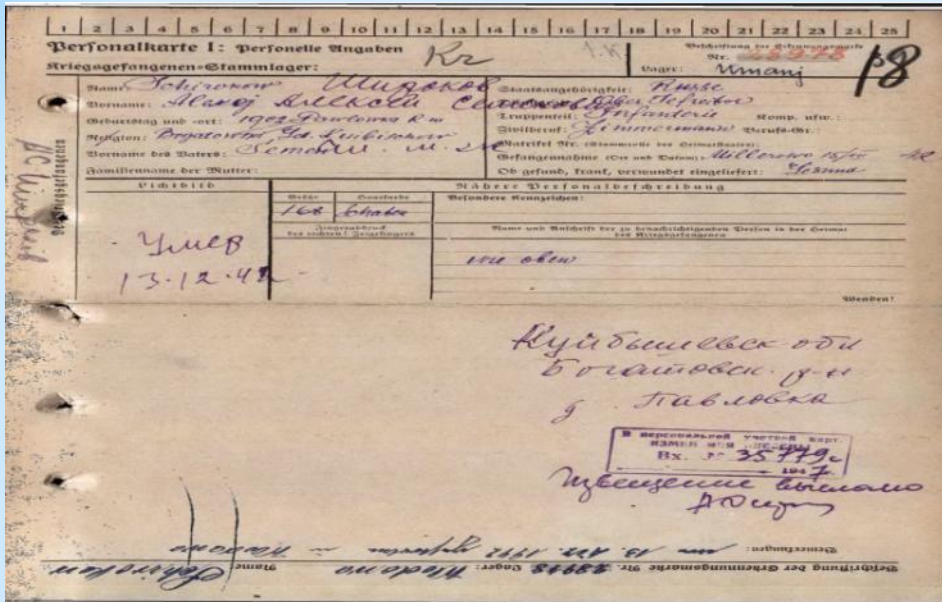 1 2 3 4 5 6 7 8 9 10 11 12 13 14 15 16 17 18 19 20 21 22 23 24 25
Personalkarte I: Personelle Angaben
Kriegsgefangenen-Stammlager:
Kr
Beschriftung der Erkennungsmarke
Nr. 28978
Lager: Umanj
18
Name: Schirokow Широков
Vorname: Alexej Алексей
Geburtstag und -ort: 1902 Pawlowka
Religion:
Vorname des Vaters: Semen
Familienname der Mutter:
Staatsangehörigkeit: Russe
Truppenteil: Infanterie Komp. usw.:
Zivilberuf: Zimmermann Berufs-Gr.:
Matrikel Nr. (Stammrolle des Heimatstaates)
Gefangennahme (Ort und Datum): Millerowo
Ob gesund, krank, verwundet eingeliefert:
des Kriegsgefangenen
Lichtbild
Nähere Personalbeschreibung
Größe Haarfarbe Besondere Kennzeichen:
168
Fingerabdruck
des rechten! Zeigefingers
Name und Anschrift der zu benachrichtigenden Person in der Heimat
des Kriegsgefangenen
wie oben
Умер
13.12.42
Wenden!
Куйбышевск обл
Богатовск. р-н
д. Павловка
В персональной учетной карт.
Вх. № 35779с
1947
Извещение выслано
Bemerkungen:
am 13. Dez. 1942
Beschriftung der Erkennungsmarke Nr. 28978 Lager:
Name Schirokow